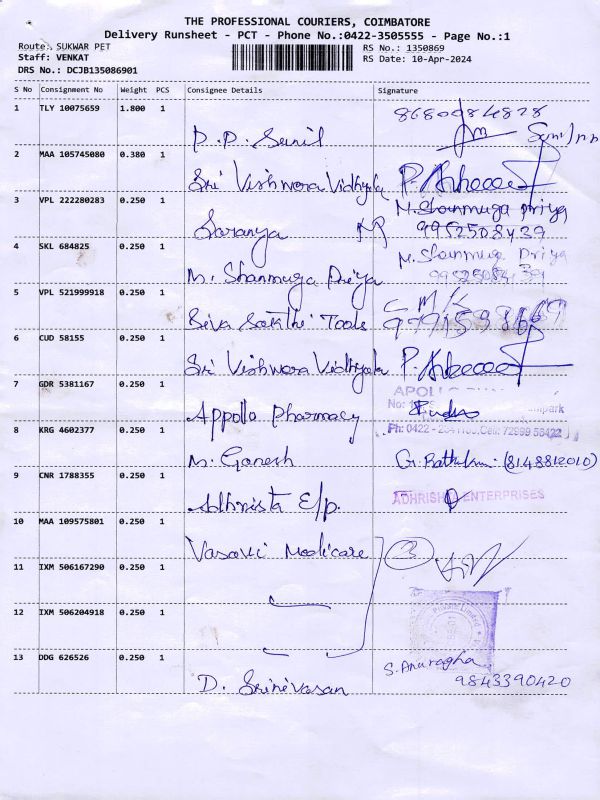 THE PROFESSIONAL COURIERS, COIMBATORE
Delivery Runsheet - PCT - Phone No.:0422-3505555 - Page No.:1
Route: SUKWAR PET
RS No.: 1350869
Staff: VENKAT
RS Date: 10-Apr-2024
DRS No.: DCJB135086901
S No Consignment No Weight PCS Consignee Details Signature
1 TLY 10075659 1.800 1 P.P. Sunil 8680084828
2 MAA 105745080 0.380 1 Sri Vishwora Vidhyala
3 VPL 222280283 0.250 1 Saranya M. Shanmuga Priya
9952508439
4 SKL 684825 0.250 1 M. Shanmuga Priya M. Shanmuga Priya
9952508439
5 VPL 521999918 0.250 1 Siva Sakthi Tools
6 CUD 58155 0.250 1 Sri Vishwora Vidhyala
7 GDR 5381167 0.250 1 Appollo Pharmacy
8 KRG 4602377 0.250 1 M. Ganesh (8148812010)
9 CNR 1788355 0.250 1 ADHRISH ENTERPRISES
10 MAA 109575801 0.250 1 Vasavi Medicare 3
11 IXM 506167290 0.250 1
12 IXM 506204918 0.250 1
13 DDG 626526 0.250 1 D. Srinivasan S. Anuragha
9843390420